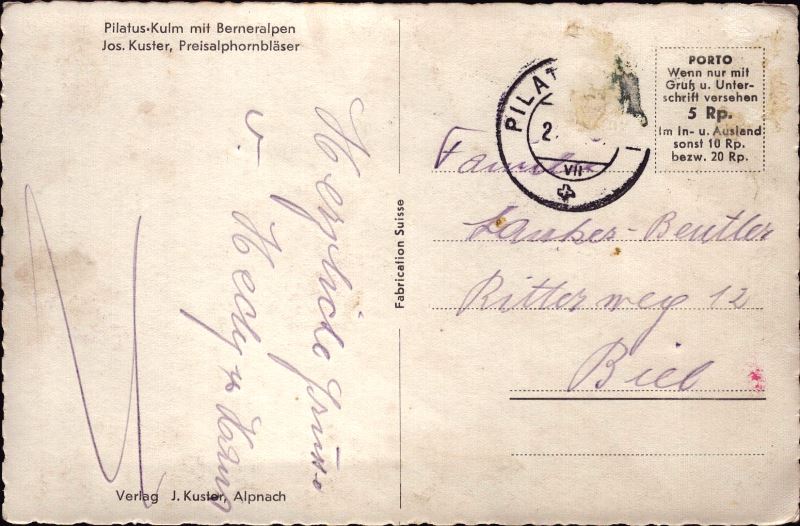 Pilatus-Kulm mit Berneralpen
Jos. Kuster, Preisalphornbläser
Herzliche Grüsse
v.
Hedy + Hans
Verlag J. Kuster, Alpnach
Fabrication Suisse
PILAT
2.
VII
PORTO
Wenn nur mit
Gruß u. Unter-
schrift versehen
5 Rp.
Im In- u. Ausland
sonst 10 Rp.
bezw. 20 Rp.
Familie
-Beutler
Ritterweg 12
Biel